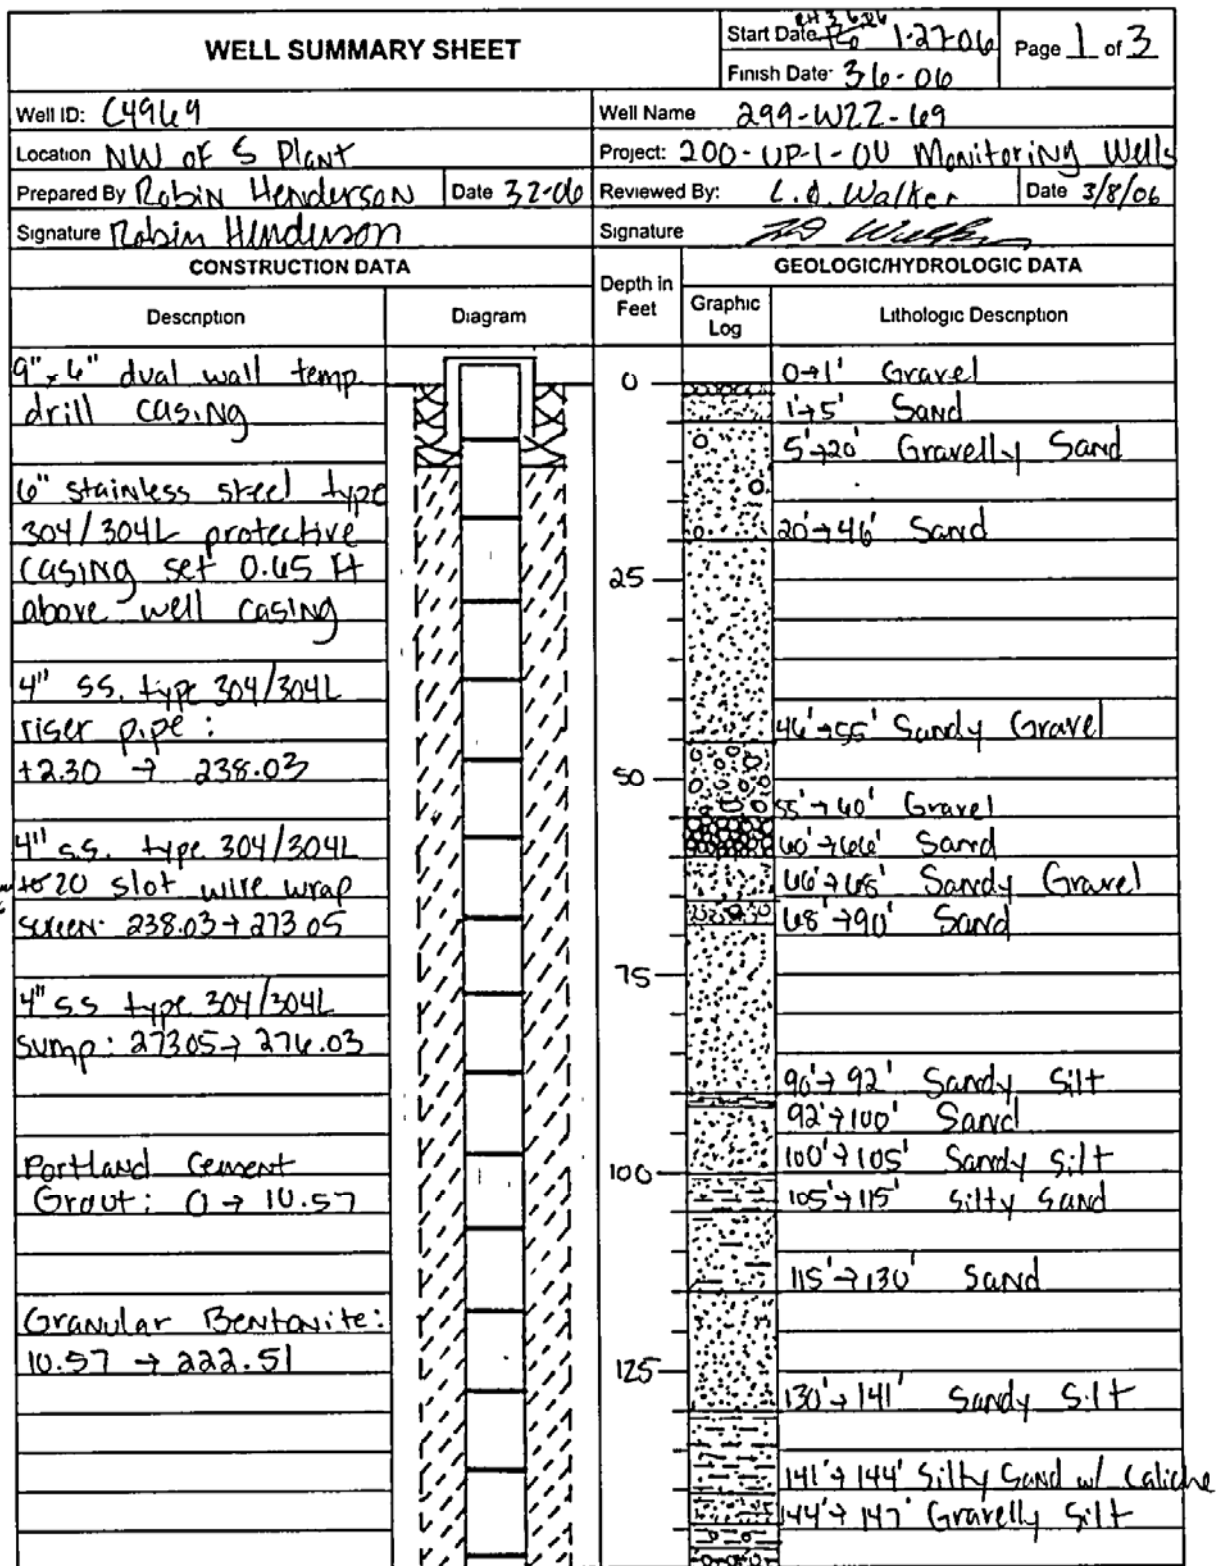 WELL SUMMARY SHEET
Start Date 1-27-06
Finish Date 3 6-06
Page 1 of 3
Well ID: C4969
Well Name 299-W22-69
Location NW of S Plant
Project: 200-UP-1-OU Monitoring Wells
Prepared By Robin Henderson Date 3 2-06
Reviewed By: L.D. Walker Date 3/8/06
Signature Robin Henderson
Signature
CONSTRUCTION DATA
Depth in Feet
GEOLOGIC/HYDROLOGIC DATA
Description
Diagram
Graphic Log
Lithologic Description
9" x 6" dual wall temp.
drill casing
6" stainless steel type
304/304L protective
casing set 0.65 ft
above well casing
4" SS. type 304/304L
riser pipe:
+2.30 → 238.03
4" s.s. type 304/304L
20 slot wire wrap
screen: 238.03 → 273 05
4" SS type 304/304L
sump: 273 05 → 276.03
Portland Cement
Grout: 0 → 10.57
Granular Bentonite:
10.57 → 222.51
0
25
50
75
100
125
0→1' Gravel
1'→5' Sand
5'→20' Gravelly Sand
20'→46' Sand
46'→55' Sandy Gravel
55'→60' Gravel
60'→66' Sand
66'→68' Sandy Gravel
68'→90' Sand
90'→92' Sandy Silt
92'→100' Sand
100'→105' Sandy Silt
105'→115' Silty Sand
115'→130' Sand
130'→141' Sandy Silt
141'→144' Silty Sand w/ Caliche
144'→147' Gravelly Silt